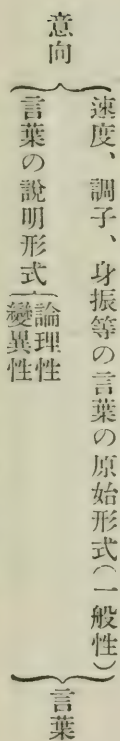 意向
速度、調子、身振等の言葉の原始形式(一般性)
言葉の說明形式
論理性
變異性
言葉